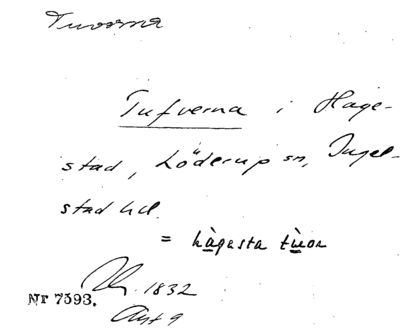 Tuvorna
Tufverna i Hage-
stad, Löderup sn, Ingel-
stad hd.
= hàgesta tùoa
1832
Nr 7593.